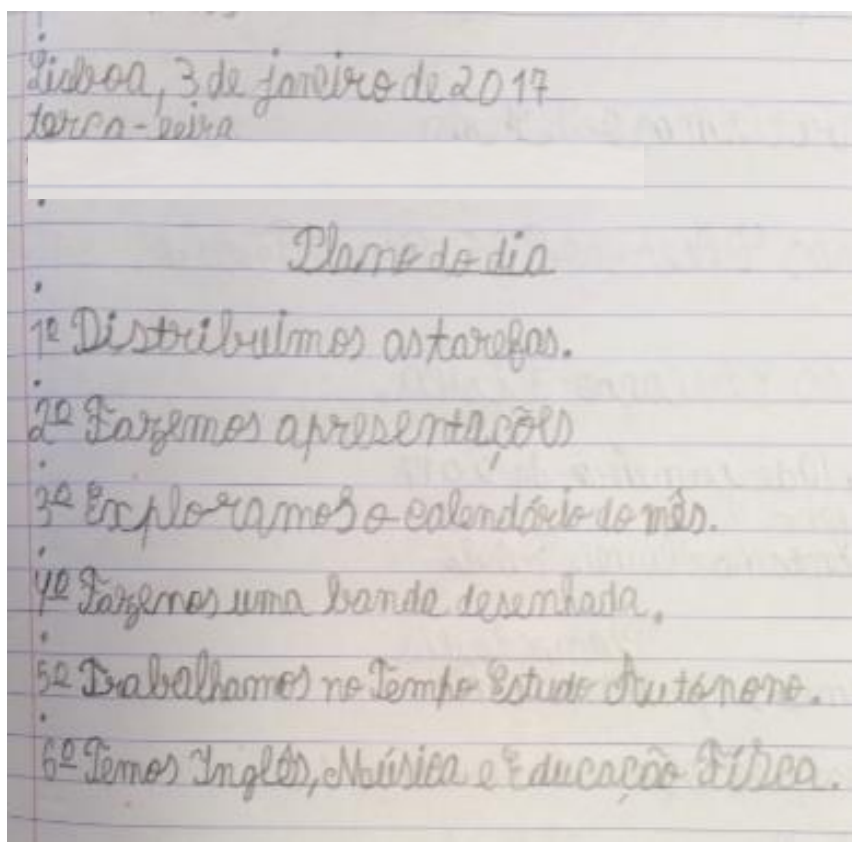 Lisboa, 3 de janeiro de 2017
terça-feira
Plano do dia
1º Distribuímos as tarefas.
2º Fazemos apresentações
3º Exploramos o calendário do mês.
4º Fazemos uma banda desenhada.
5º Trabalhamos no Tempo Estudo Autónono.
6º Temos Inglês, Música e Educação Física.